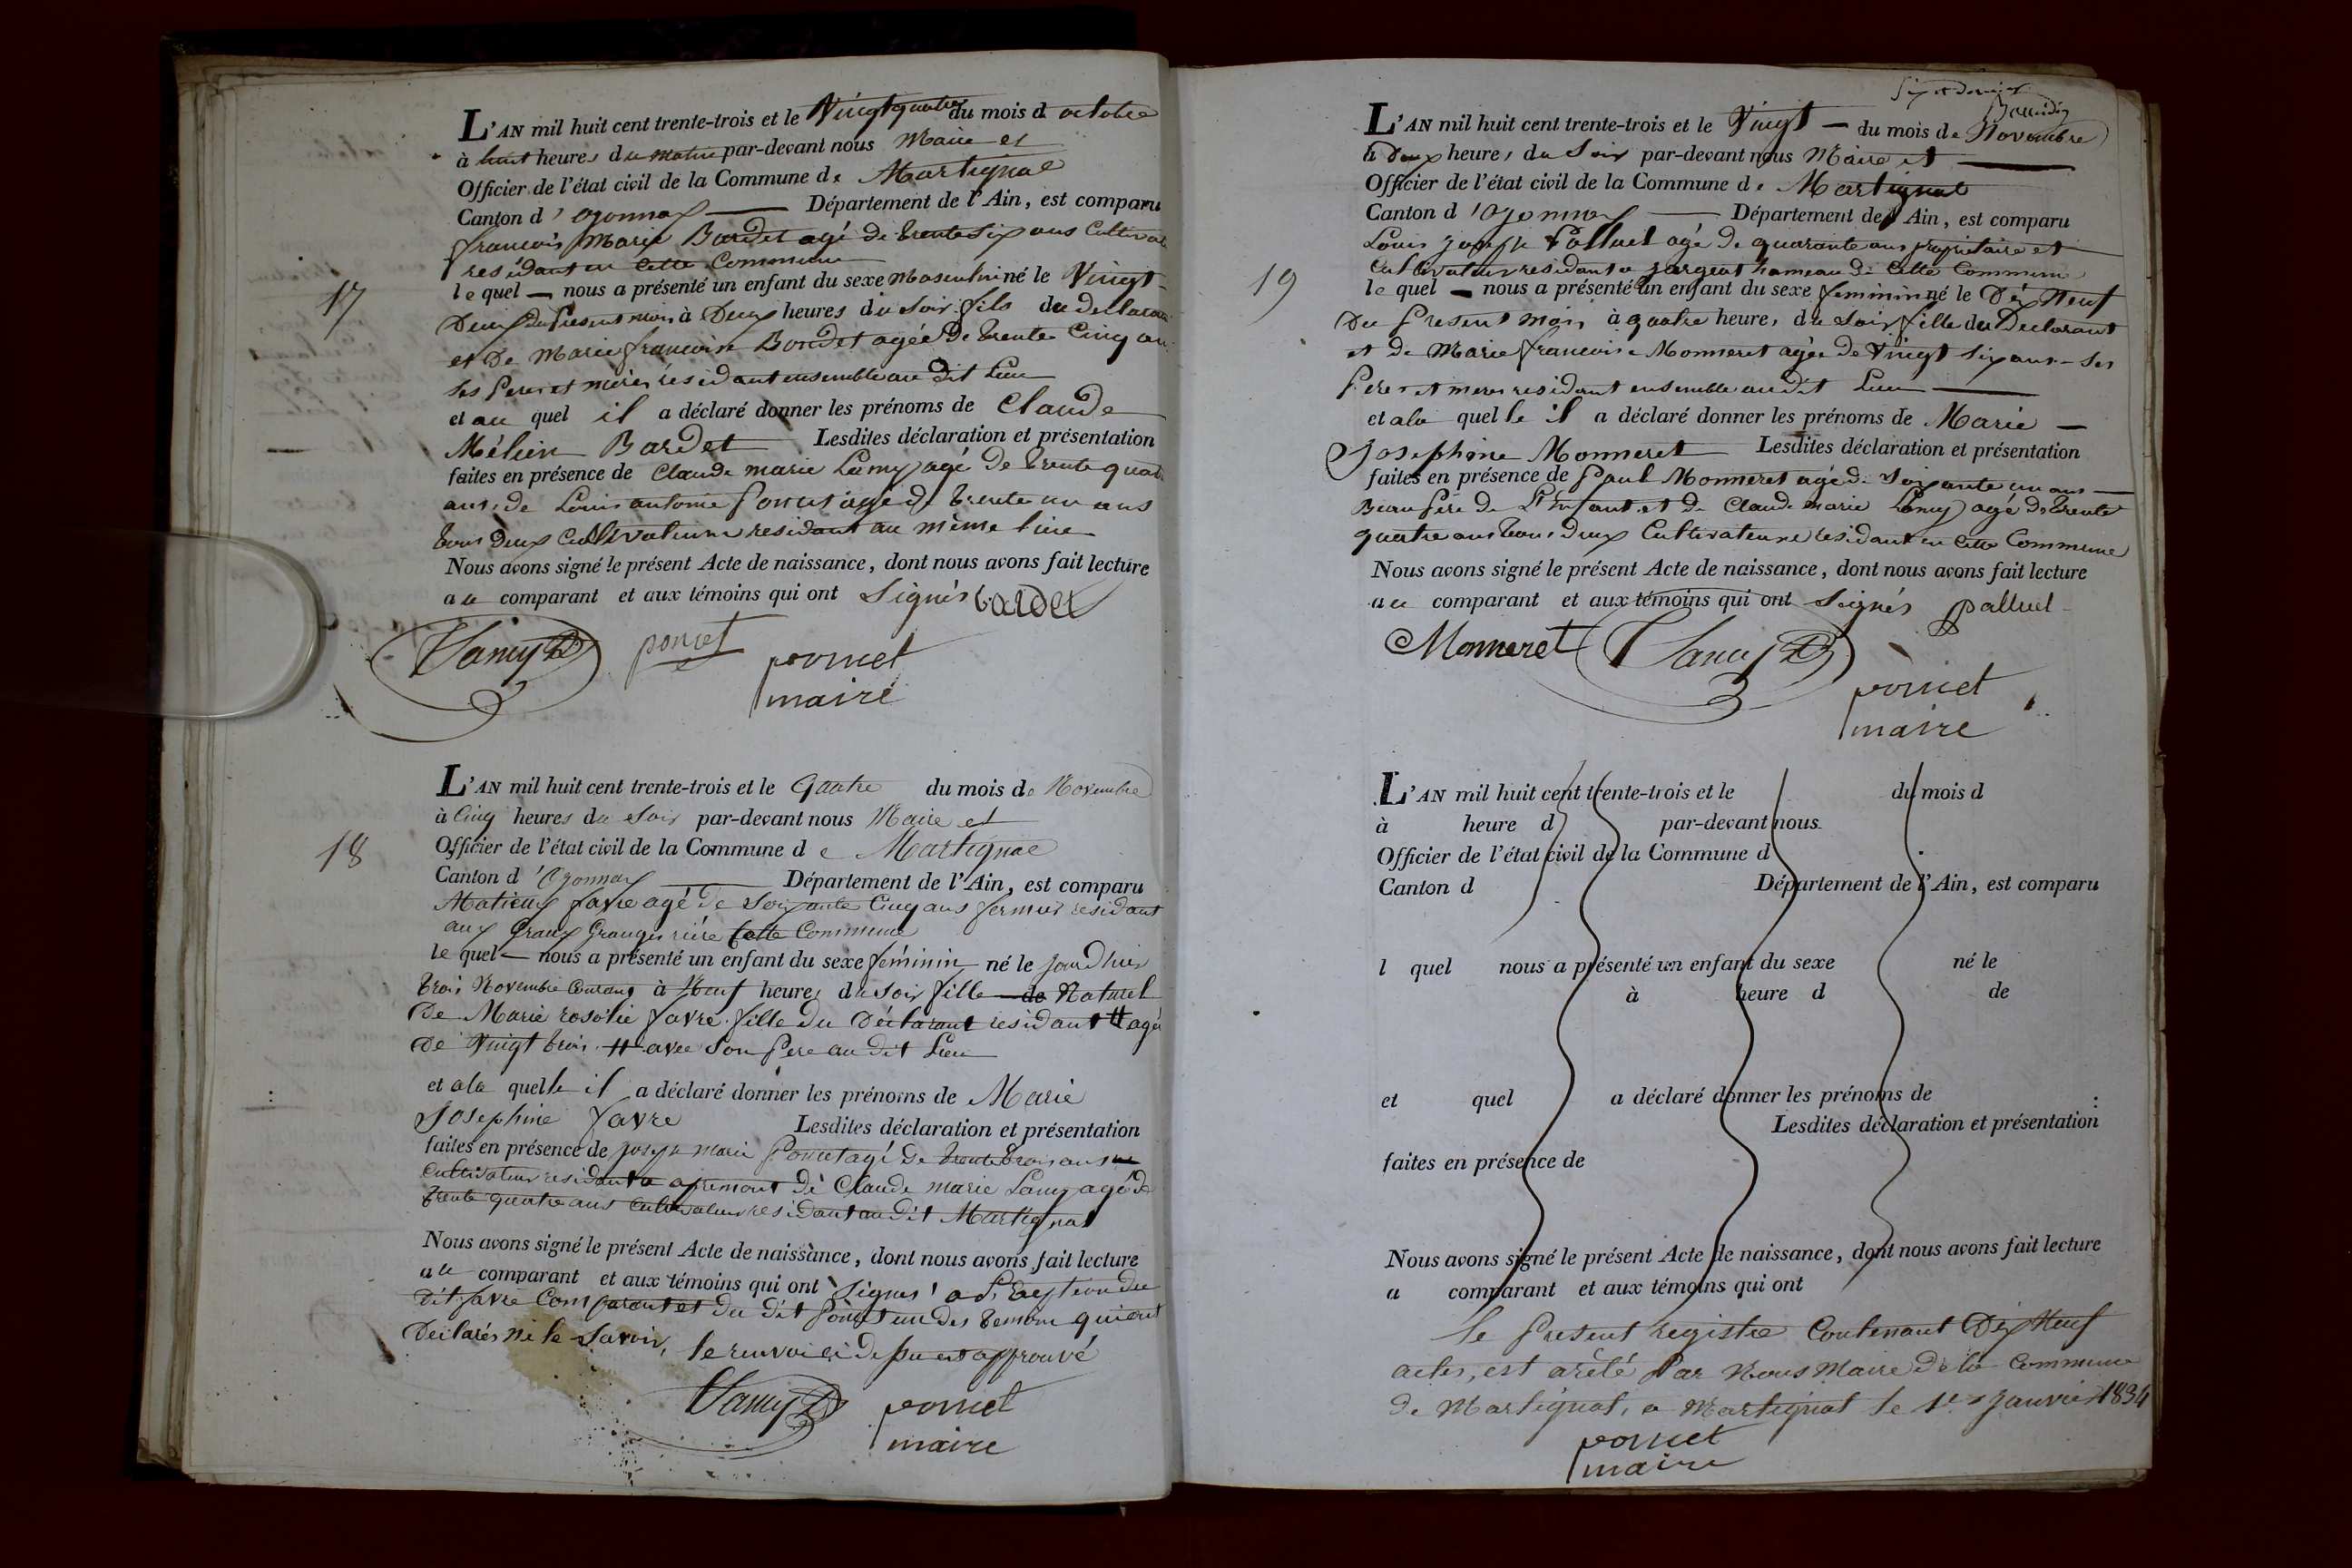 L'AN mil huit cent trente-trois et le Vingtquatre du mois d octobre
à huit heures du matin par-devant nous Maire et
Officier de l'état civil de la Commune de Martignat
Canton d'oyonnax Département de l'Ain, est comparu
francois Marie Bardet agé de trente six ans Cultivat
residant en cette Commune
17
lequel nous a présenté un enfant du sexe Masculin né le Vingt
Deux du present mois à Deux heures du soir fils du declarant
et De Marie francoise Bondet agée De trente Cinq ans
ses peres et meres résidant ensemble au Dit Lieu
et au quel il a déclaré donner les prénoms de Claude
Mélien Bardet Lesdites déclaration et présentation
faites en présence de Claude marie Lamy agé De trente quatre
ans, de Louis antoine Poncet agé de trente un ans
tous deux Cultivateurs residant au même lieu
Nous avons signé le présent Acte de naissance, dont nous avons fait lecture
au comparant et aux témoins qui ont Signés bardet
Lamy poncet poncet
maire
L'AN mil huit cent trente-trois et le Quatre du mois de Novembre
à Cinq heures du Soir par-devant nous Maire et
18
Officier de l'état civil de la Commune de Martignat
Canton d'Oyonnax Département de l'Ain, est comparu
Matieux favre agé de Soixante Cinq ans fermier residant
aux Granges rière cette Commune
lequel nous a présenté un enfant du sexe féminin né le jourdhier
trois Novembre Courant à Neuf heures du soir fille de Naturel
De Marie rosalie favre fille du Déclarant residant # agé
De Vingt trois # avec Son Pere au dit Lieu
et ala quelle il a déclaré donner les prénoms de Marie
Josephine favre Lesdites déclaration et présentation
faites en présence de joseph marie Poncet agé De trente trois ans
Cultivateur residant a apremont de Claude marie Lamy agé de
trente quatre ans Cultivateur residant au dit Martignat
Nous avons signé le présent Acte de naissance, dont nous avons fait lecture
au comparant et aux témoins qui ont Signés a L'Exeption du
Dit favre Comparant et du dit Poncet un des temoins qui ont
Déclarés ne le Savoir, le renvoi ci dessu est approuvé
Lamy poncet
maire
Six et dernier
L'AN mil huit cent trente-trois et le Vingt du mois de Novembre
à Deux heures du Soir par-devant nous Maire et
Officier de l'état civil de la Commune de Martignat
Canton d'Oyonnax Département de l'Ain, est comparu
Louis joseph Palluel agé de quarante ans propriétaire et
Cultivateur residant a jargeat hameau de cette Commune
19
lequel nous a présenté un enfant du sexe feminin né le Dix Neuf
Du present Mois à quatre heures du Soir fille du Declarant
et de Marie francoise Monneret agée de Vingt six ans Ses
Peres et meres residant ensemble audit Lieu
et ala quelle il a déclaré donner les prénoms de Marie
Josephine Monneret Lesdites déclaration et présentation
faites en présence de Paul Monneret agé de Soixante un ans
Beau Père de L'Enfant et de Claude marie Lamy agé de trente
quatre ans tous deux Cultivateurs residant en cette Commune
Nous avons signé le présent Acte de naissance, dont nous avons fait lecture
au comparant et aux témoins qui ont Signés palluel
Monneret Lamy
poncet
maire
L'AN mil huit cent trente-trois et le du mois d
à heure d par-devant nous
Officier de l'état civil de la Commune d
Canton d Département de l'Ain, est comparu
l quel nous a présenté un enfant du sexe né le
à heure d de
et quel a déclaré donner les prénoms de
Lesdites déclaration et présentation
faites en présence de
Nous avons signé le présent Acte de naissance, dont nous avons fait lecture
a comparant et aux témoins qui ont
Le present registre Contenant Dix Neuf
actes, est arêté Par Nous Maire de la Commune
de Martignat, a Martignat le 1er janvier 1834
poncet
maire